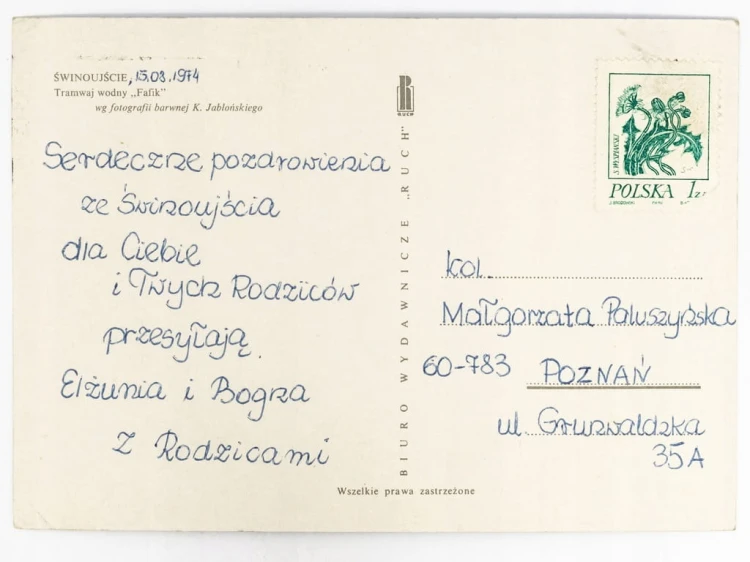 ŚWINOUJŚCIE, 15.08.1974
Tramwaj wodny „Fafik"
wg fotografii barwnej K. Jabłońskiego
Serdeczne pozdrowienia
ze Świnoujścia
dla Ciebie
i Twych Rodziców
przesyłają
Elżunia i Bogna
z Rodzicami
RUCH
BIURO WYDAWNICZE „RUCH"
S. WYSPIAŃSKI
POLSKA 1zł
kol.
Małgorzata Paluszyńska
60-783 POZNAŃ
ul. Grunwaldzka
35A
Wszelkie prawa zastrzeżone